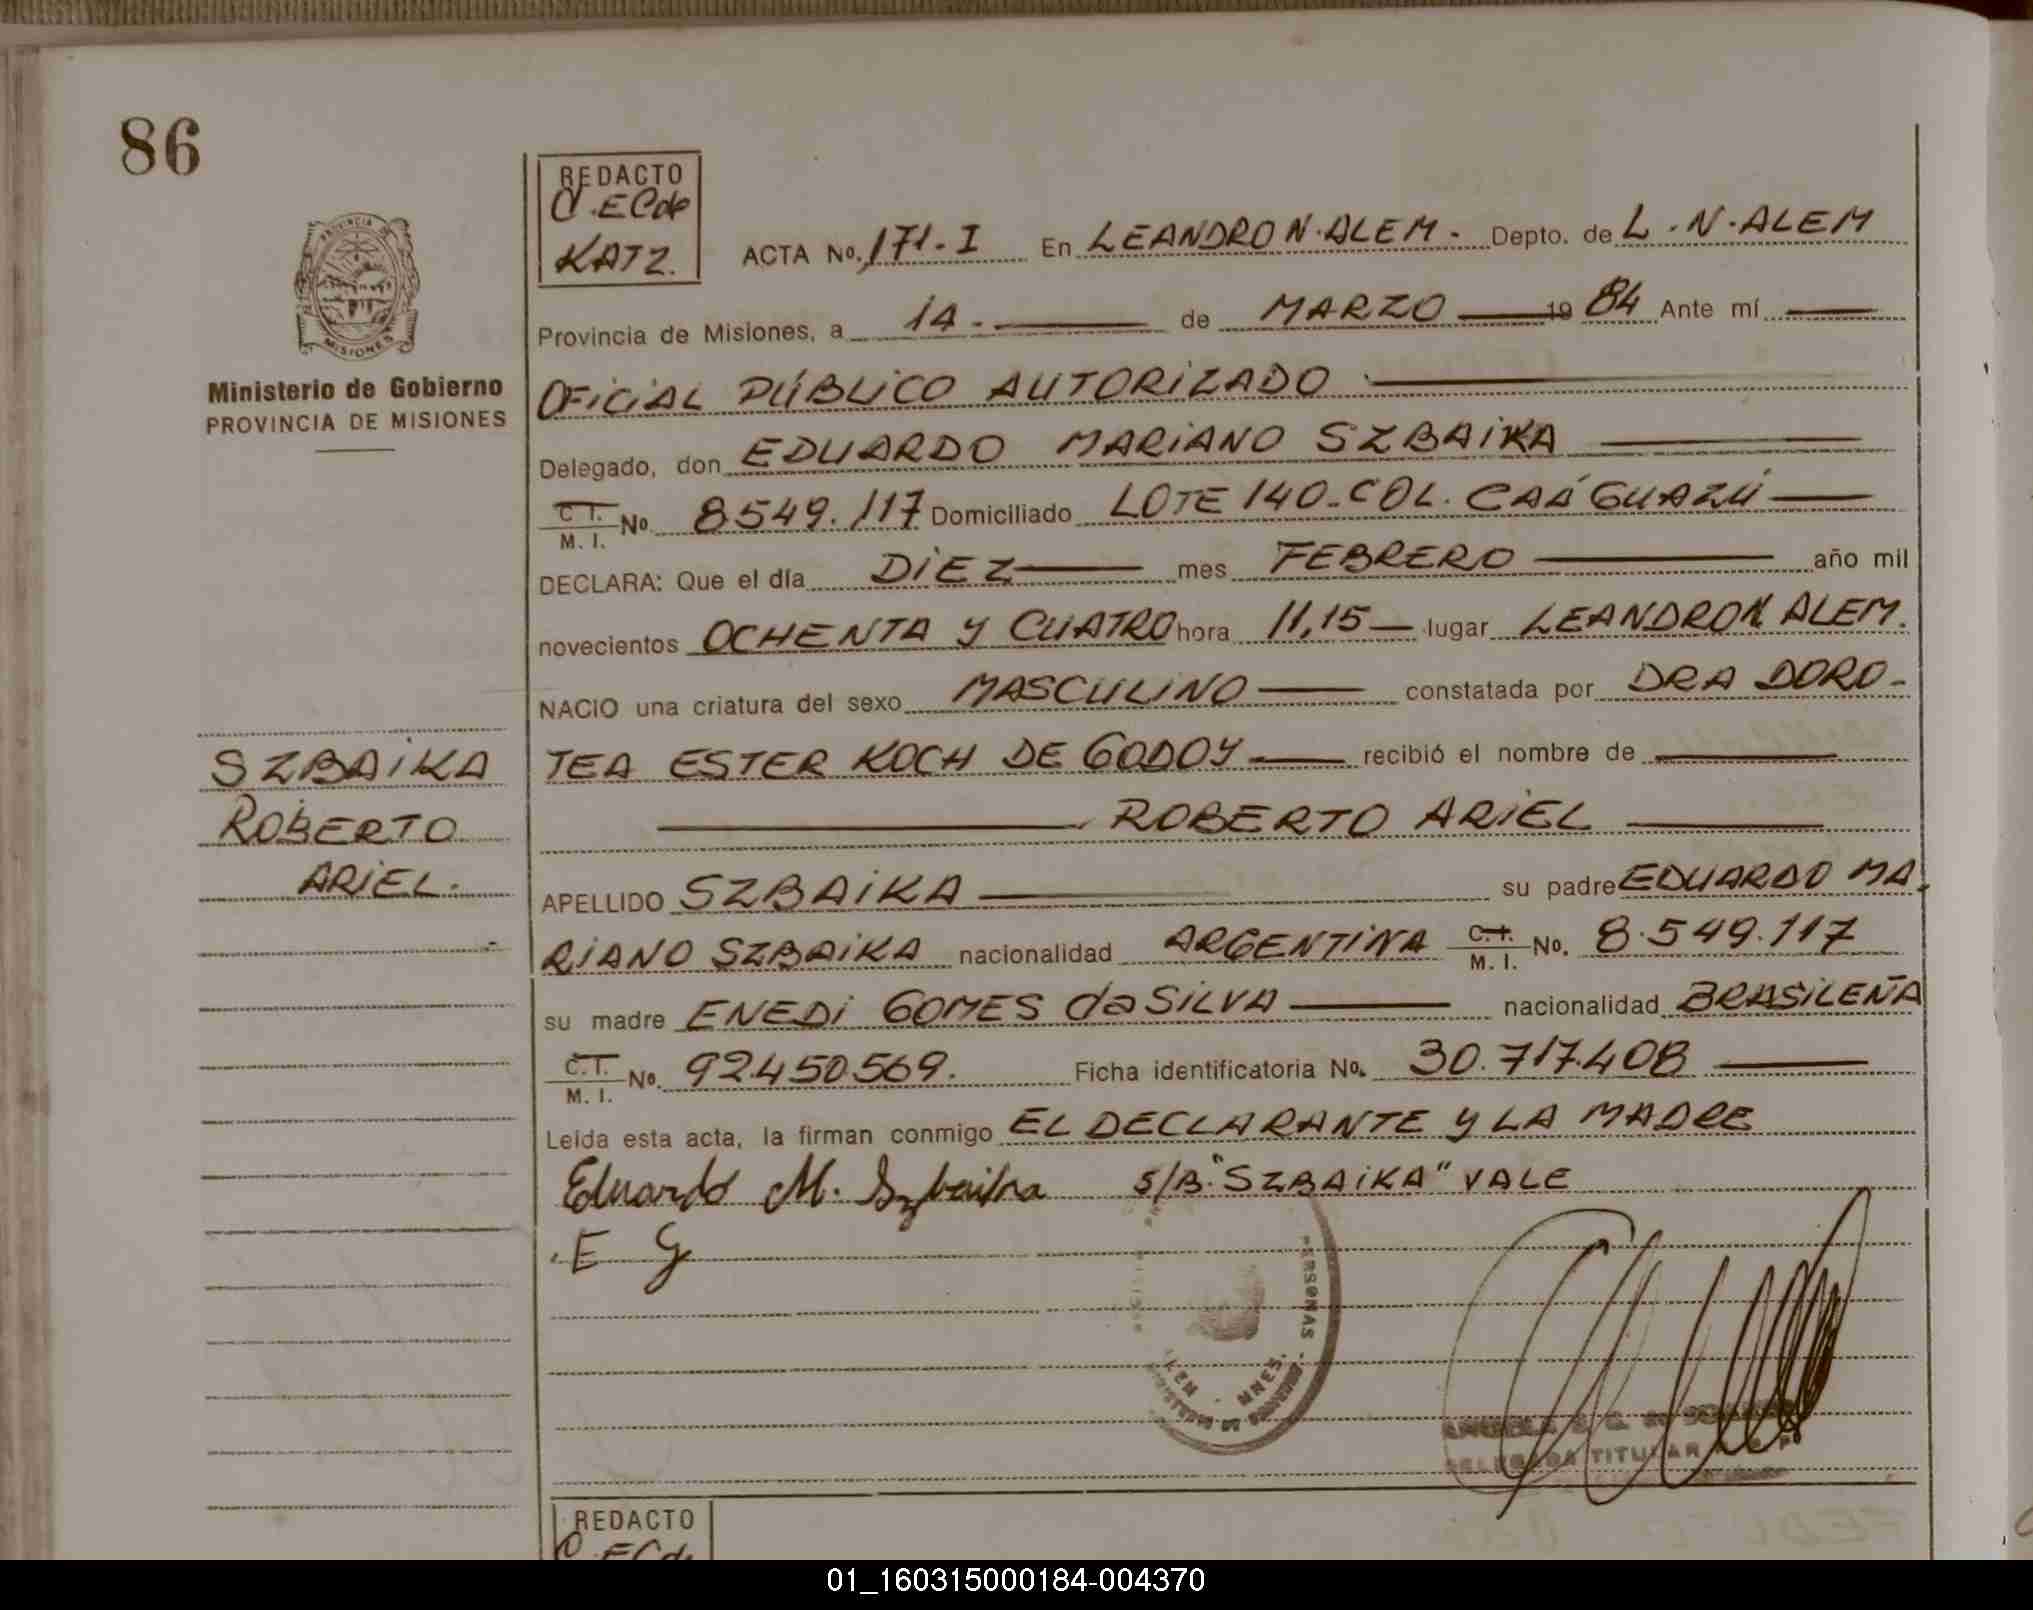 86
REDACTO
KATZ.
ACTA No. 171-I En LEANDRO N. ALEM. Depto. de L. N. ALEM
Provincia de Misiones, a 14. de MARZO 19 84 Ante mí
PROVINCIA DE
MISIONES
Ministerio de Gobierno
PROVINCIA DE MISIONES
OFICIAL PÚBLICO AUTORIZADO
Delegado, don EDUARDO MARIANO SZBAIKA
C. I. M. I. No. 8549.117 Domiciliado LOTE 140-COL. CAÁ GUAZÚ
DECLARA: Que el día DIEZ mes FEBRERO año mil
novecientos OCHENTA Y CUATRO hora 11,15 lugar LEANDRO N. ALEM.
NACIO una criatura del sexo MASCULINO constatada por DRA DORO-
TEA ESTER KOCH DE GODOY recibió el nombre de
ROBERTO ARIEL
SZBAIKA
ROBERTO
ARIEL.
APELLIDO SZBAIKA su padre EDUARDO MA
RIANO SZBAIKA nacionalidad ARGENTINA C.I. M. I. No. 8.549.117
su madre ENEDI GOMES da SILVA nacionalidad BRASILEÑA
C.I. M. I. No. 92450569. Ficha identificatoria No. 30.717.408
Leída esta acta, la firman conmigo EL DECLARANTE Y LA MADRE
Eduardo M. Szbaika S/B. "SZBAIKA" VALE
E G
PERSONAS
TITULAR
REDACTO
01_160315000184-004370